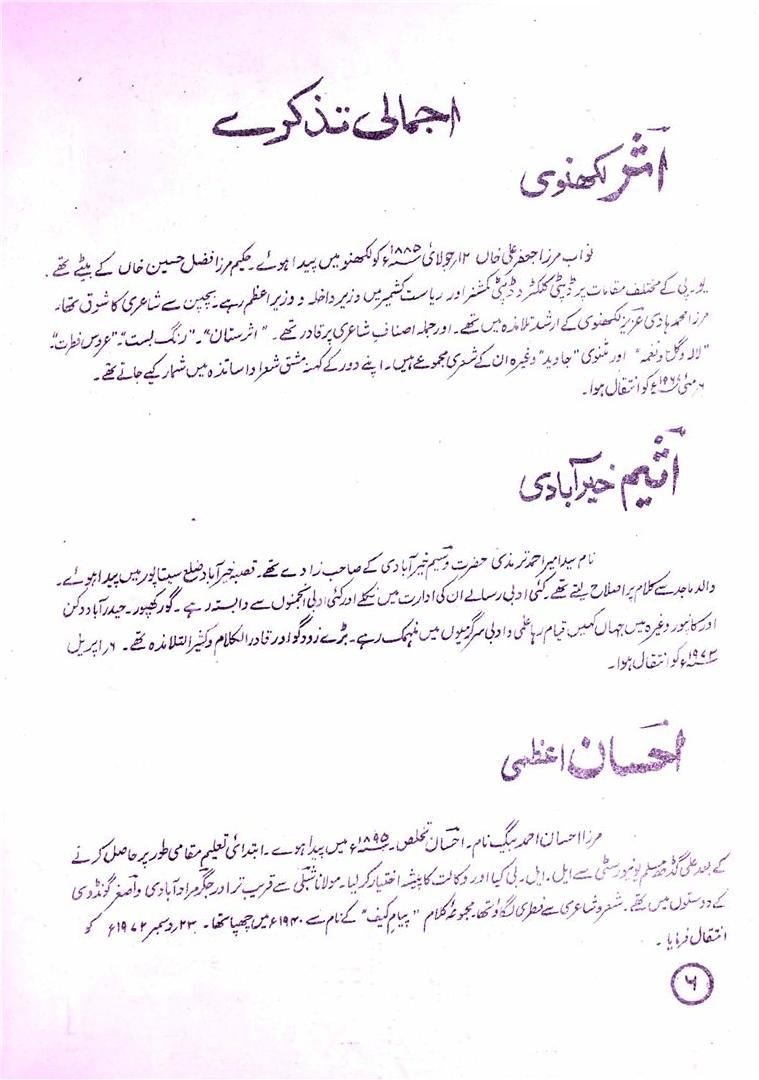 اجمالی تذکرے
اثر لکھنوی
نواب مرزا جعفر علی خاں ۱۲؍جولائی ۱۸۸۵ء کو لکھنو میں پیدا ہوئے۔ حکیم مرزا فضل حسین خاں کے بیٹے تھے۔
یو۔پی کے مختلف مقامات پر ڈپٹی کلکٹر و ڈپٹی کمشنر اور ریاست کشمیر میں وزیر داخلہ و وزیر اعظم رہے۔ بچپن سے شاعری کا شوق تھا۔
مرزا محمد ہادی عزیز لکھنوی کے ارشد تلامذہ میں تھے۔ اور جملہ اصناف شاعری پر قادر تھے۔ "اثرستان"۔ "رنگ بست"۔ "عروس فطرت"۔
"لالہ و گل و نغمہ" اور مثنوی "جاوید" وغیرہ ان کے شعری مجموعے ہیں۔ اپنے دور کے کہنہ مشق شعرا و اساتذہ میں شمار کیے جاتے تھے۔
۶؍مئی ۱۹۶۷ء کو انتقال ہوا۔
اثیم خیرآبادی
نام سید امیر احمد ترمذی حضرت وسیم خیرآبادی کے صاحب زادے تھے۔ قصبہ خیرآباد ضلع سیتاپور میں پیدا ہوئے۔
والد ماجد سے کلام پر اصلاح لیتے تھے۔ کئی ادبی رسالے ان کی ادارت میں نکلے اور کئی ادبی انجمنوں سے وابستہ رہے۔ گورکھپور۔ حیدرآباد دکن
اور کانپور وغیرہ میں جہاں کہیں قیام رہا علمی و ادبی سرگرمیوں میں منہمک رہے۔ بڑے زود گو اور قادر الکلام و کثیر التلامذہ تھے۔ ۶؍اپریل
۱۹۷۲ء کو انتقال ہوا۔
احسان اعظمی
مرزا احسان احمد بیگ نام۔ احسان تخلص۔ ۱۸۹۵ء میں پیدا ہوے۔ ابتدائی تعلیم مقامی طور پر حاصل کرنے
کے بعد علی گڈھ مسلم یونیورسٹی سے ایل۔ایل۔بی کیا اور وکالت کا پیشہ اختیار کر لیا۔ مولانا شبلی سے قریب تر اور جگر مرادآبادی و اصغر گونڈوی
کے دوستوں میں تھے۔ شعر و شاعری سے فطری لگاؤ تھا۔ مجموعہ کلام "پیام کیف" کے نام سے ۱۹۴۰ء میں چھپا تھا۔ ۲۳؍دسمبر ۱۹۷۲ء کو
انتقال فرمایا۔
۶